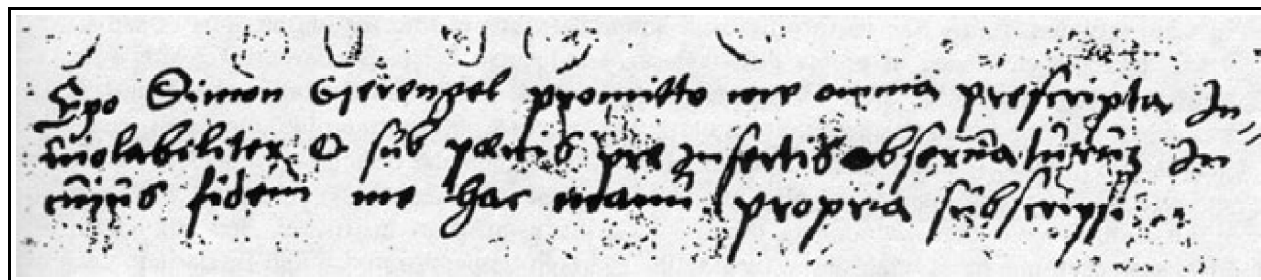 Ego Simon Gerengel promitto me omnia prescripta In„
violabiliter & sub poenis pre insertis observaturum In
cuius fidem me hac manu propria subscripsi